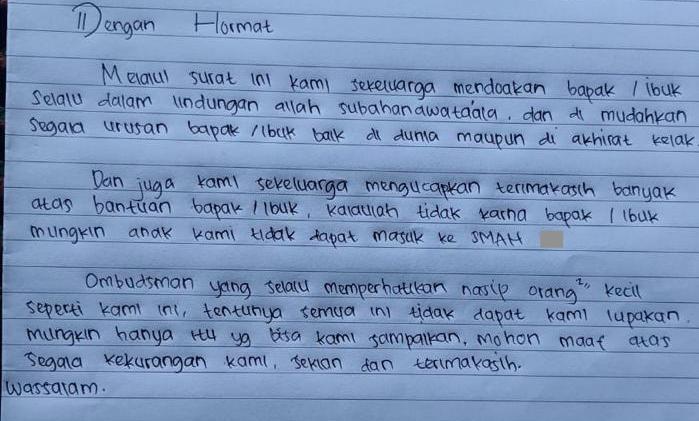 Dengan Hormat
Melalui surat ini kami sekeluarga mendoakan bapak / ibuk
Selalu dalam lindungan allah subahanawataáala, dan di mudahkan
Segala urusan bapak / ibuk baik di dunia maupun di akhirat kelak.
Dan juga kami sekeluarga mengucapkan terimakasih banyak
atas bantuan bapak / ibuk, kalaulah tidak karna bapak / ibuk
mungkin anak kami tidak dapat masuk ke SMAH
Ombudsman yang selalu memperhatikan nasip orang²" kecil
seperti kami ini, tentunya semua ini tidak dapat kami lupakan.
mungkin hanya itu yg bisa kami sampaikan, mohon maaf atas
segala kekurangan kami, sekian dan terimakasih.
Wassalam.